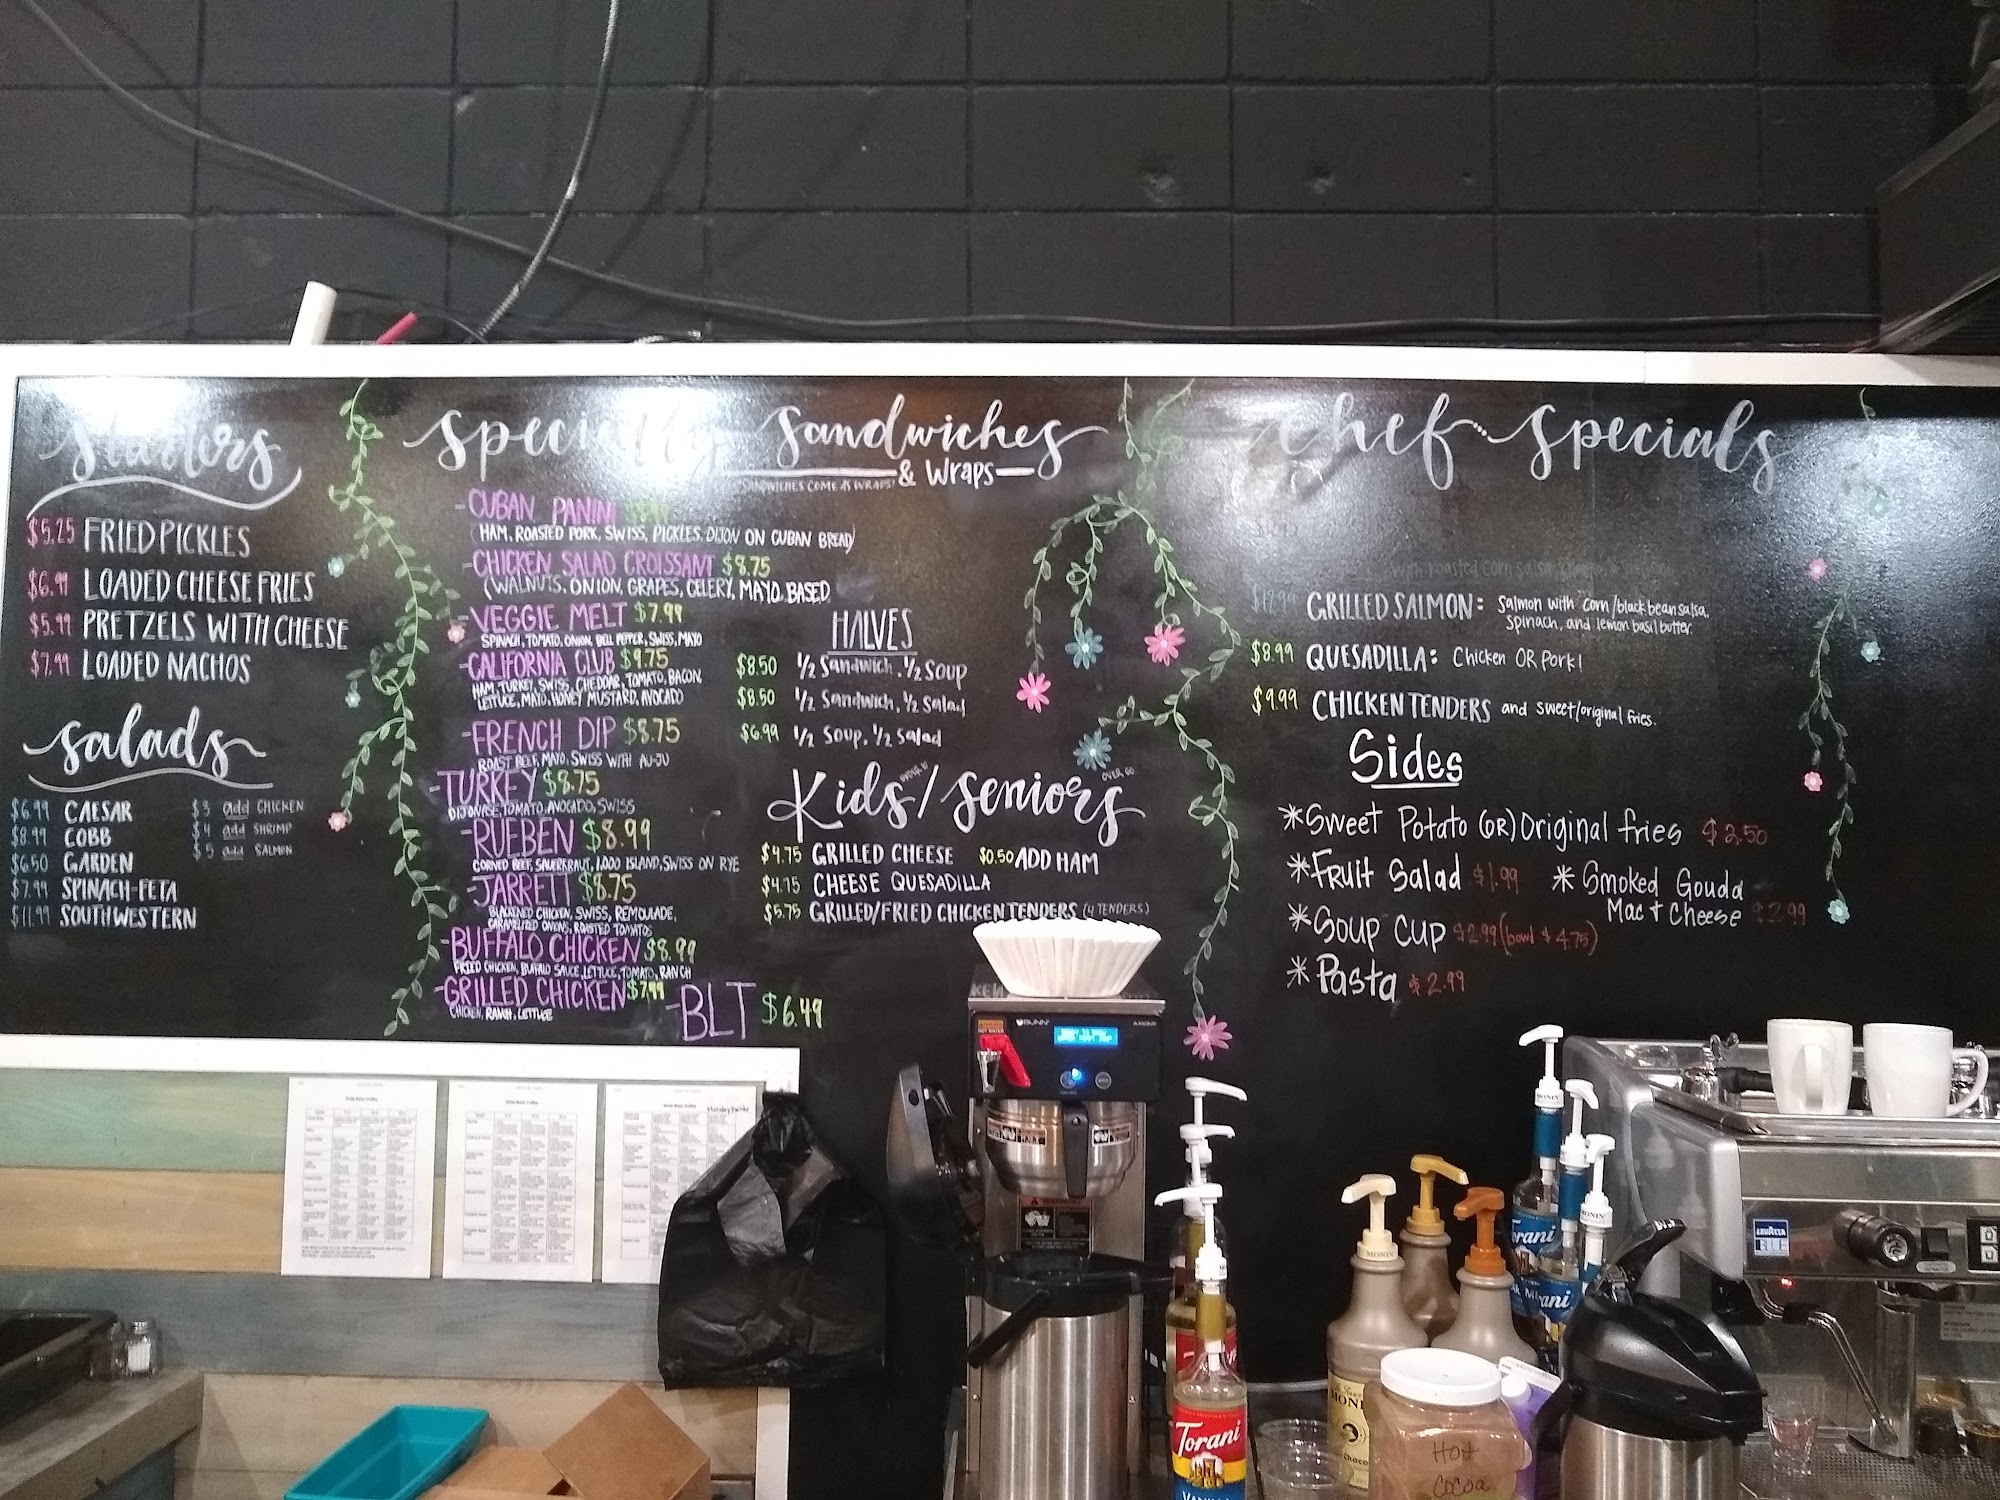 Starters
$5.25 FRIED PICKLES
$6.99 LOADED CHEESE FRIES
$5.99 PRETZELS WITH CHEESE
$7.99 LOADED NACHOS
Salads
$6.99 CAESAR
$8.99 COBB
$6.50 GARDEN
$7.99 SPINACH-FETA
$11.99 SOUTHWESTERN
$3 add CHICKEN
$4 add SHRIMP
$5 add SALMON
Specialty Sandwiches
& Wraps
SANDWICHES COME AS WRAPS!
-CUBAN PANINI
(HAM, ROASTED PORK, SWISS, PICKLES, DIJON ON CUBAN BREAD)
-CHICKEN SALAD CROISSANT $8.75
(WALNUTS, ONION, GRAPES, CELERY, MAYO BASED
-VEGGIE MELT $7.99
SPINACH, TOMATO, ONION, BELL PEPPER, SWISS, MAYO
-CALIFORNIA CLUB $9.75
HAM, TURKEY, SWISS, CHEDDAR, TOMATO, BACON,
LETTUCE, MAYO, HONEY MUSTARD, AVOCADO
-FRENCH DIP $8.75
ROAST BEEF, MAYO, SWISS WITH AU-JU
-TURKEY $8.75
DIJONAISE, TOMATO, AVOCADO, SWISS
-RUEBEN $8.99
CORNED BEEF, SAUERKRAUT, 1,000 ISLAND, SWISS ON RYE
-JARRETT $8.75
BLACKENED CHICKEN, SWISS, REMOULADE,
CARAMELIZED ONIONS, ROASTED TOMATOS
-BUFFALO CHICKEN $8.99
FRIED CHICKEN, BUFFALO SAUCE, LETTUCE, TOMATO, RANCH
-GRILLED CHICKEN $7.99
CHICKEN, RANCH, LETTUCE
-BLT $6.49
HALVES
$8.50 1/2 Sandwich, 1/2 Soup
$8.50 1/2 Sandwich, 1/2 Salad
$6.99 1/2 Soup, 1/2 Salad
Kids/Seniors
OVER 60
$4.75 GRILLED CHEESE $0.50 ADD HAM
$4.75 CHEESE QUESADILLA
$5.75 GRILLED/FRIED CHICKEN TENDERS (4 TENDERS)
Chef Specials
with roasted corn salsa
$12.99 GRILLED SALMON: Salmon with corn/black bean salsa,
Spinach, and lemon basil butter.
$8.99 QUESADILLA: Chicken OR Pork!
$9.99 CHICKEN TENDERS and sweet/original fries.
Sides
*Sweet Potato (OR) Original fries $2.50
*Fruit Salad $1.99
*Smoked Gouda
Mac + Cheese $2.99
*Soup Cup $2.99 (bowl $4.75)
*Pasta $2.99
BUNN
MONIN
MONIN
MONIN
MONIN
Torani
Torani
LAVAZZA
BLUE
Torani
VANILLA
HOT
COCOA